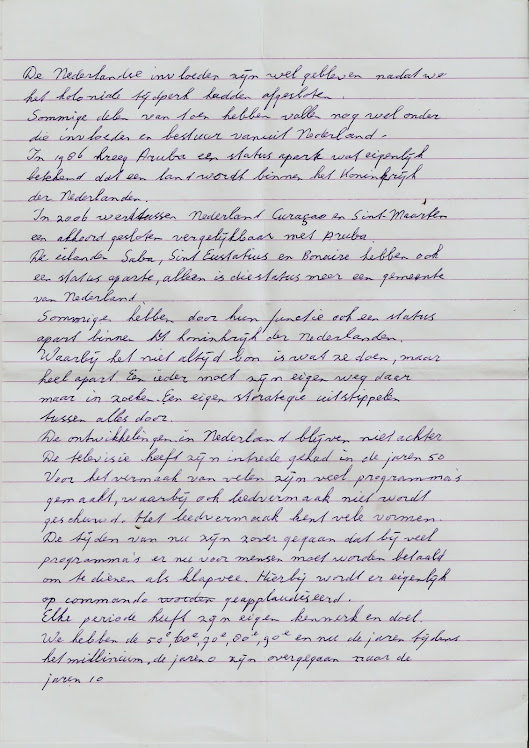 De Nederlandse invloeden zijn wel gebleven nadat we
het koloniale tijdperk hadden afgesloten.
Sommige delen van toen hebben vallen nog wel onder
die invloeden en bestuur vanuit Nederland.
In 1986 kreeg Aruba een status aparte wat eigenlijk
betekend dat een land wordt binnen het Koninkrijk
der Nederlanden.
In 2006 werd tussen Nederland Curaçao en Sint-Maarten
een akkoord gesloten vergelijkbaar met Aruba.
De eilanden Saba, Sint Eustatius en Bonaire hebben ook
een status aparte, alleen is die status meer een gemeente
van Nederland.
Sommigen hebben door hun functie ook een status
apart binnen het koninkrijk der Nederlanden.
Waarbij het niet altijd is wat ze doen, maar
heel apart. Een ieder moet zijn eigen weg daar
maar in zoeken. Een eigen strategie uitstippelen
tussen alles door.
De ontwikkelingen in Nederland blijven niet achter
De televisie heeft zijn intrede gehad in de jaren 50
Voor het vermaak van velen zijn veel programma's
gemaakt, waarbij ook leedvermaak niet wordt
geschuwd. Het leedvermaak kent vele vormen.
De tijden van nu zijn zover gegaan dat bij veel
programma's er nu voor mensen moet worden betaald
om te dienen als klapvee. Hierbij wordt er eigenlijk
op commando worden geapplaudiseerd.
Elke periode heeft zijn eigen kenmerk en doel.
We hebben de 50e, 60e, 70e, 80e, 90e en nu de jaren tijdens
het millinium, de jaren 0 zijn overgegaan naar de
jaren 10